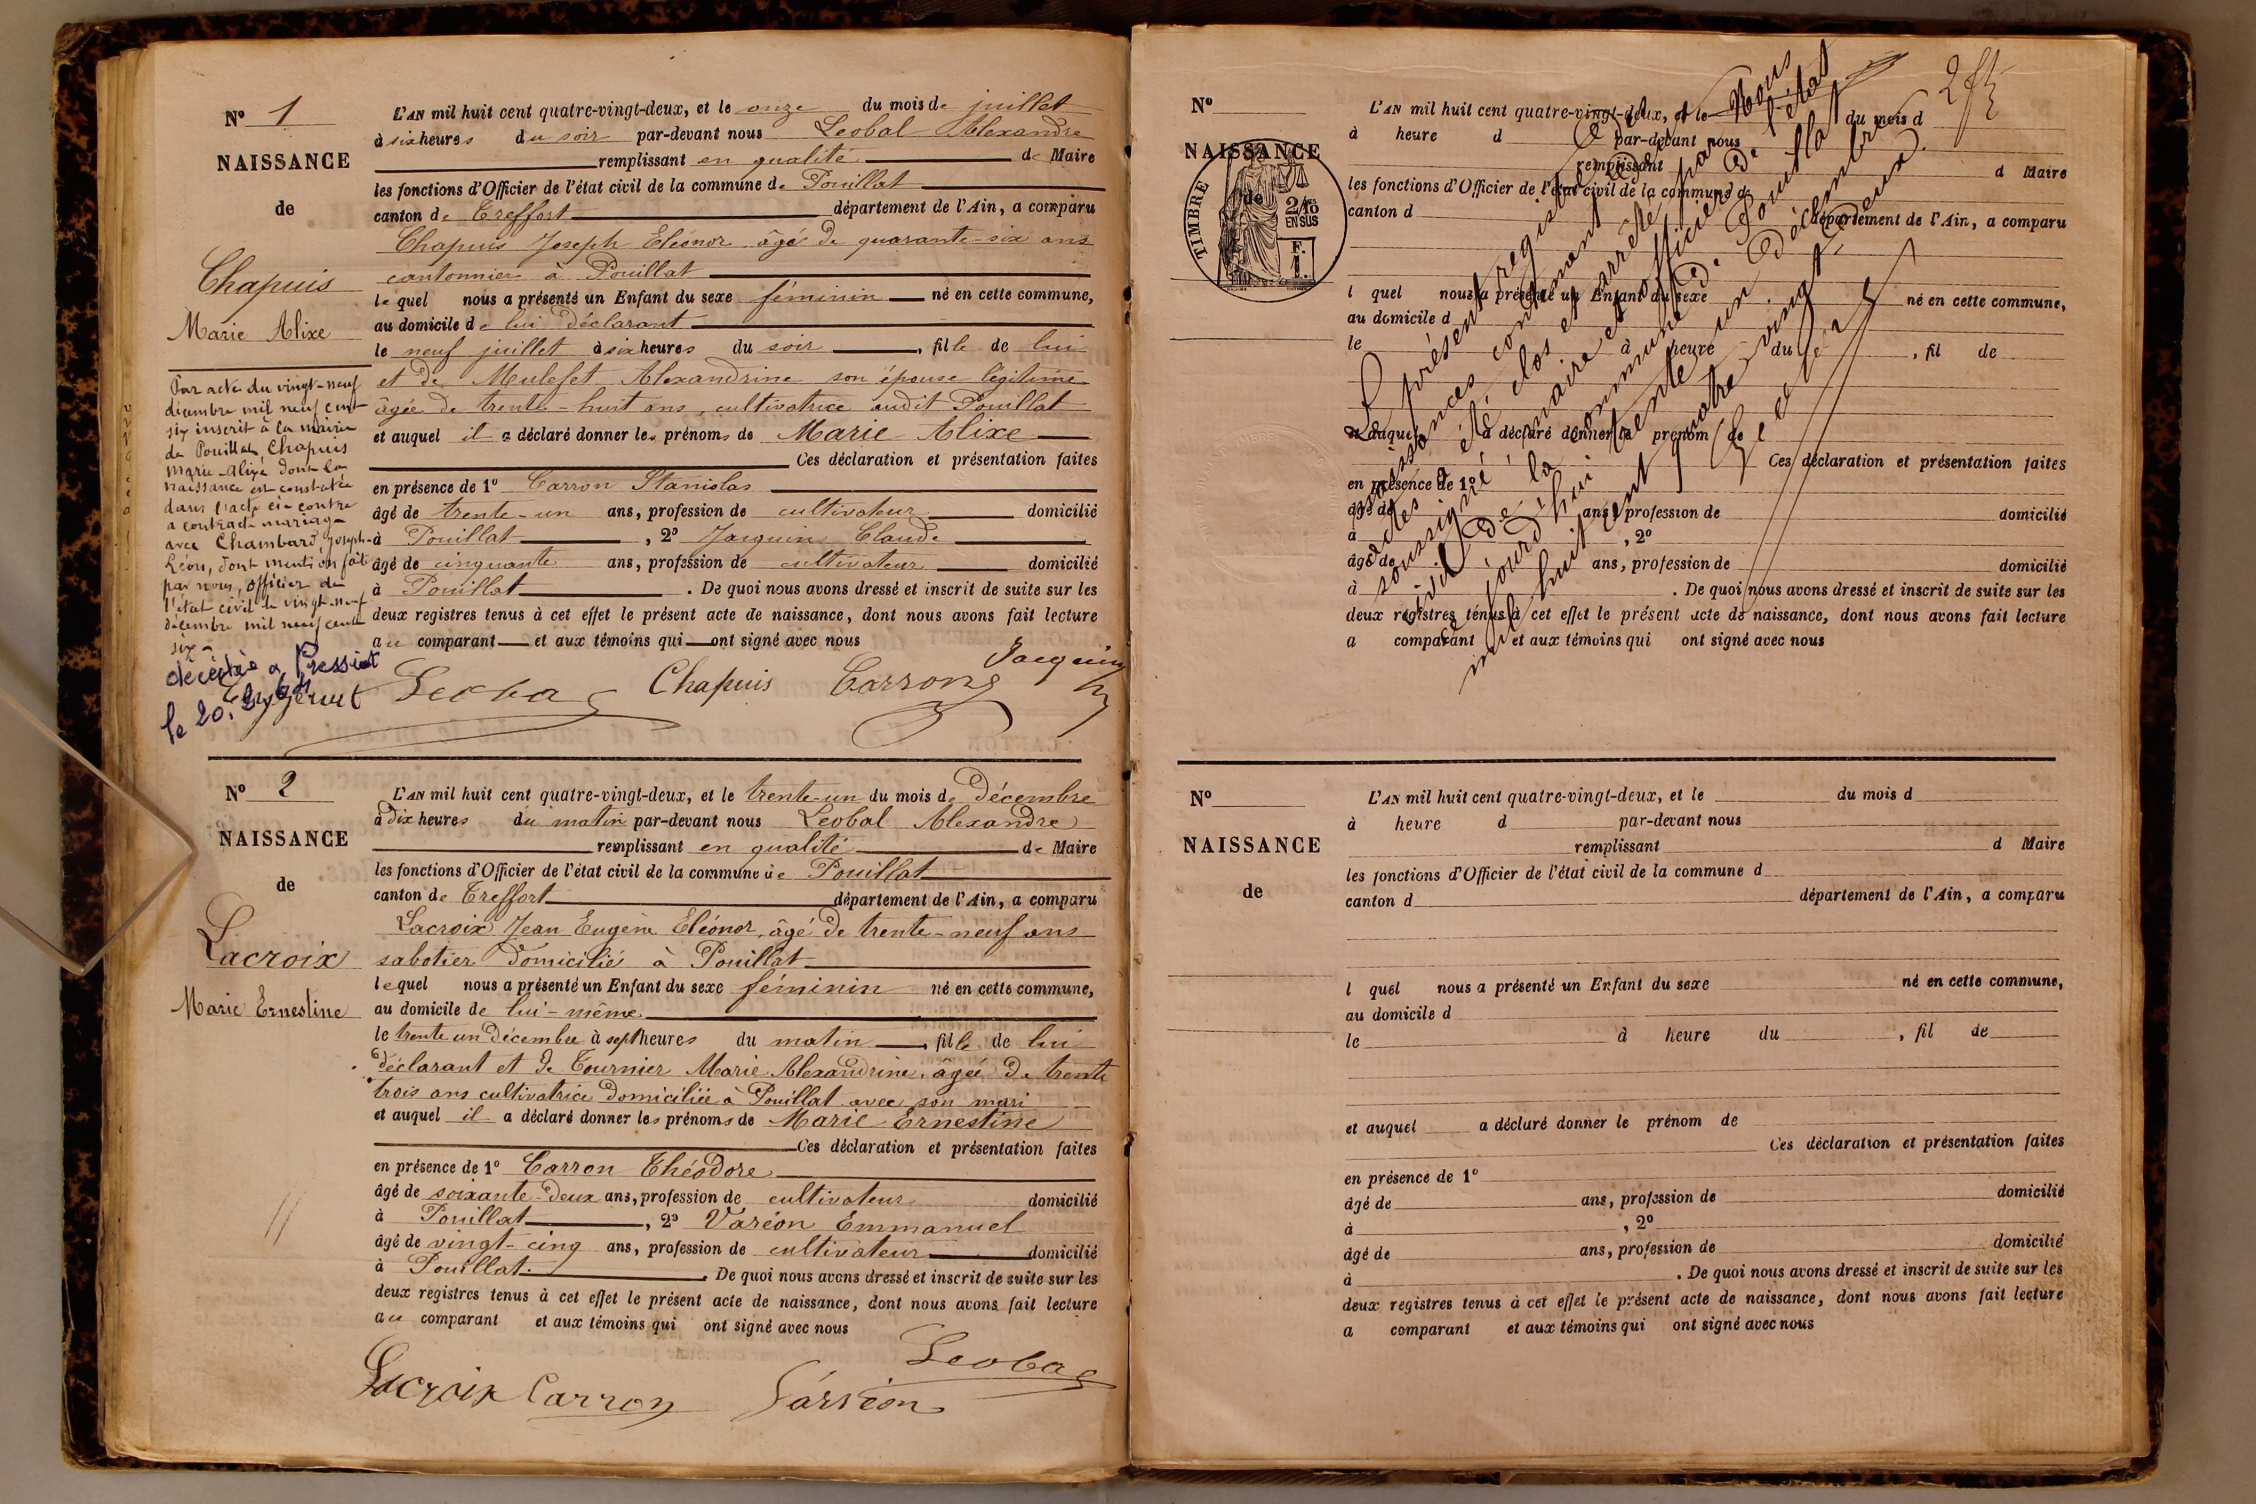 N° 1
NAISSANCE
de
Chapuis
Marie Alixe
L'AN mil huit cent quatre-vingt-deux, et le onze du mois de juillet
à six heures du soir par-devant nous Leobal Alexandre
remplissant en qualité de Maire
les fonctions d'Officier de l'état civil de la commune de Pouillat
canton de Treffort département de l'Ain, a comparu
Chapuis Joseph Eléonor âgé de quarante-six ans
cantonnier à Pouillat
lequel nous a présenté un Enfant du sexe féminin né en cette commune,
au domicile de lui déclarant
le neuf juillet à six heures du soir, fille de lui
et de Mulefet Alexandrine son épouse légitime
âgée de trente-huit ans, cultivatrice audit Pouillat
et auquel il a déclaré donner les prénoms de Marie Alixe
Ces déclaration et présentation faites
en présence de 1° Carron Stanislas
âgé de trente-un ans, profession de cultivateur domicilié
à Pouillat, 2° Jacquin Claude
âgé de cinquante ans, profession de cultivateur domicilié
à Pouillat. De quoi nous avons dressé et inscrit de suite sur les
deux registres tenus à cet effet le présent acte de naissance, dont nous avons fait lecture
au comparant et aux témoins qui ont signé avec nous
Leobal Chapuis Carron Jacquin
Par acte du vingt-neuf
décembre mil neuf cent
six inscrit à la mairie
de Pouillat, Chapuis
Marie-Alixe dont la
naissance est constatée
dans l'acte ci-contre
a contracté mariage
avec Chambard Joseph-
Léon, dont mention faite
par nous, officier de
l'état civil le vingt-neuf
décembre mil neuf cent
six
décédée à Pressiat
le 20.
N° 2
NAISSANCE
de
Lacroix
Marie Ernestine
L'AN mil huit cent quatre-vingt-deux, et le trente-un du mois de décembre
à dix heures du matin par-devant nous Leobal Alexandre
remplissant en qualité de Maire
les fonctions d'Officier de l'état civil de la commune de Pouillat
canton de Treffort département de l'Ain, a comparu
Lacroix Jean Eugène Eléonor, âgé de trente-neuf ans
sabotier domicilié à Pouillat
lequel nous a présenté un Enfant du sexe féminin né en cette commune,
au domicile de lui-même
le trente un décembre à sept heures du matin, fille de lui
déclarant et de Tournier Marie Alexandrine, âgée de trente
trois ans cultivatrice domiciliée à Pouillat avec son mari
et auquel il a déclaré donner les prénoms de Marie Ernestine
Ces déclaration et présentation faites
en présence de 1° Carron Théodore
âgé de soixante-deux ans, profession de cultivateur domicilié
à Pouillat, 2° Varéon Emmanuel
âgé de vingt-cinq ans, profession de cultivateur domicilié
à Pouillat. De quoi nous avons dressé et inscrit de suite sur les
deux registres tenus à cet effet le présent acte de naissance, dont nous avons fait lecture
au comparant et aux témoins qui ont signé avec nous
Leobal
Lacroix Carron Varéon
N°
NAISSANCE
de
TIMBRE
2/10
EN SUS
F.
1.
L'AN mil huit cent quatre-vingt-deux, et le du mois d
à heure d par-devant nous
remplissant d Maire
les fonctions d'Officier de l'état civil de la commune d
canton d département de l'Ain, a comparu
l quel nous a présenté un Enfant du sexe né en cette commune,
au domicile d
le à heure du, fil de
et auquel a déclaré donner le prénom de
Ces déclaration et présentation faites
en présence de 1°
âgé de ans, profession de domicilié
à, 2°
âgé de ans, profession de domicilié
à. De quoi nous avons dressé et inscrit de suite sur les
deux registres tenus à cet effet le présent acte de naissance, dont nous avons fait lecture
a comparant et aux témoins qui ont signé avec nous
Le présent registre des
naissances contenant deux
actes a été clos et arrêté par Nous
soussigné maire et officier de l'état
civil de la commune de Pouillat
ce jourd'hui trente un décembre
mil huit cent quatre-vingt-deux.
N°
NAISSANCE
de
L'AN mil huit cent quatre-vingt-deux, et le du mois d
à heure d par-devant nous
remplissant d Maire
les fonctions d'Officier de l'état civil de la commune d
canton d département de l'Ain, a comparu
l quel nous a présenté un Enfant du sexe né en cette commune,
au domicile d
le à heure du, fil de
et auquel a déclaré donner le prénom de
Ces déclaration et présentation faites
en présence de 1°
âgé de ans, profession de domicilié
à, 2°
âgé de ans, profession de domicilié
à. De quoi nous avons dressé et inscrit de suite sur les
deux registres tenus à cet effet le présent acte de naissance, dont nous avons fait lecture
a comparant et aux témoins qui ont signé avec nous